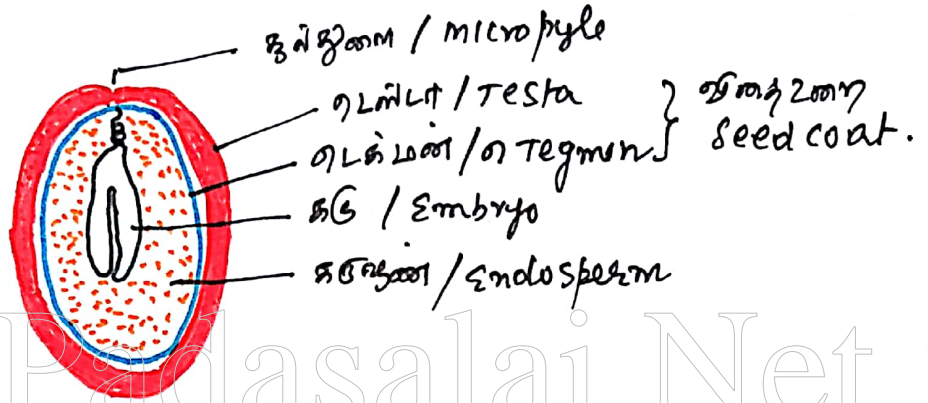 சூல்துளை / micropyle
டெஸ்டா / Testa
டெக்மன் / Tegmen
விதை உறை
Seed coat.
கரு / Embryo
கருவூண் / Endosperm
Padasalai Net